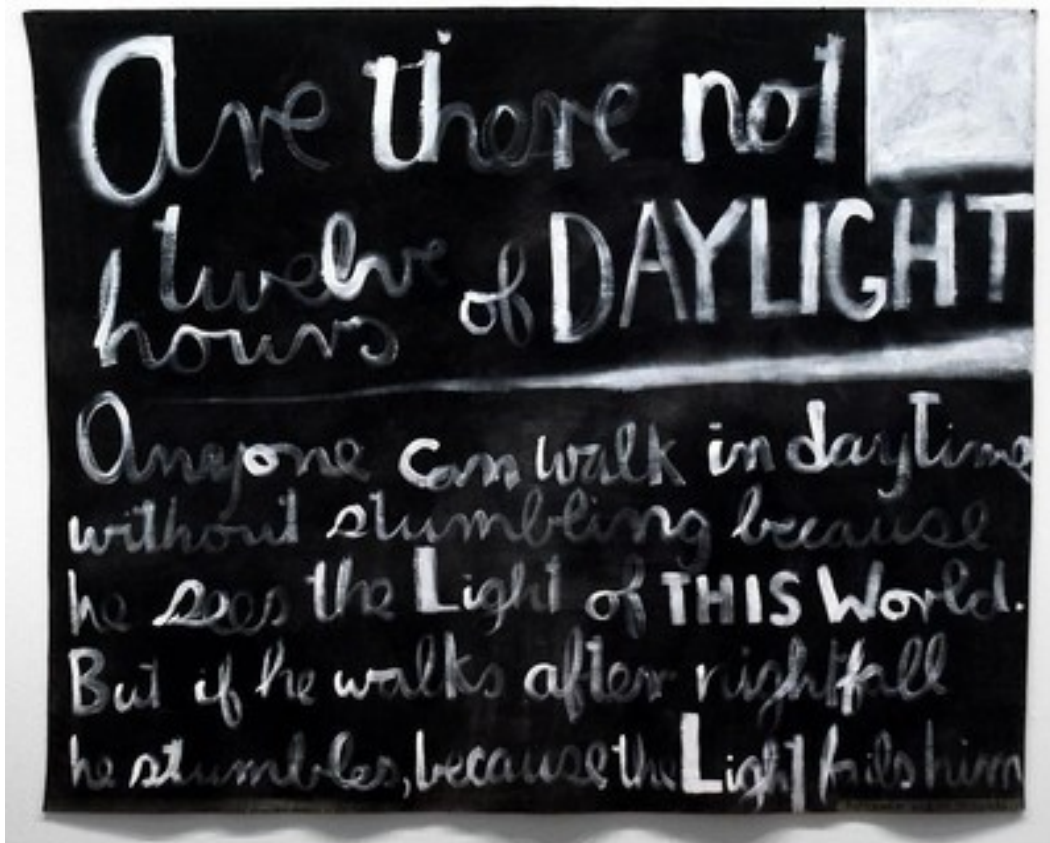 Are there not
twelve
hours of DAYLIGHT
Anyone can walk in daytime
without stumbling because
he sees the Light of THIS World.
But if he walks after nightfall
he stumbles, because the Light fails him